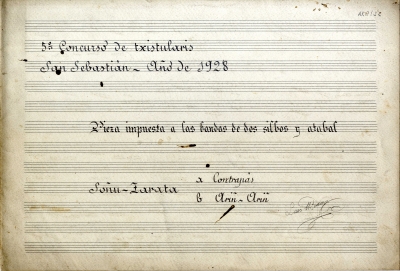 5º Concurso de txistularis
San Sebastián - Año de 1928
Pieza impuesta a las bandas de dos silbos y atabal
Soñu-Zarata
a Contrapás
b Ariñ-Ariñ